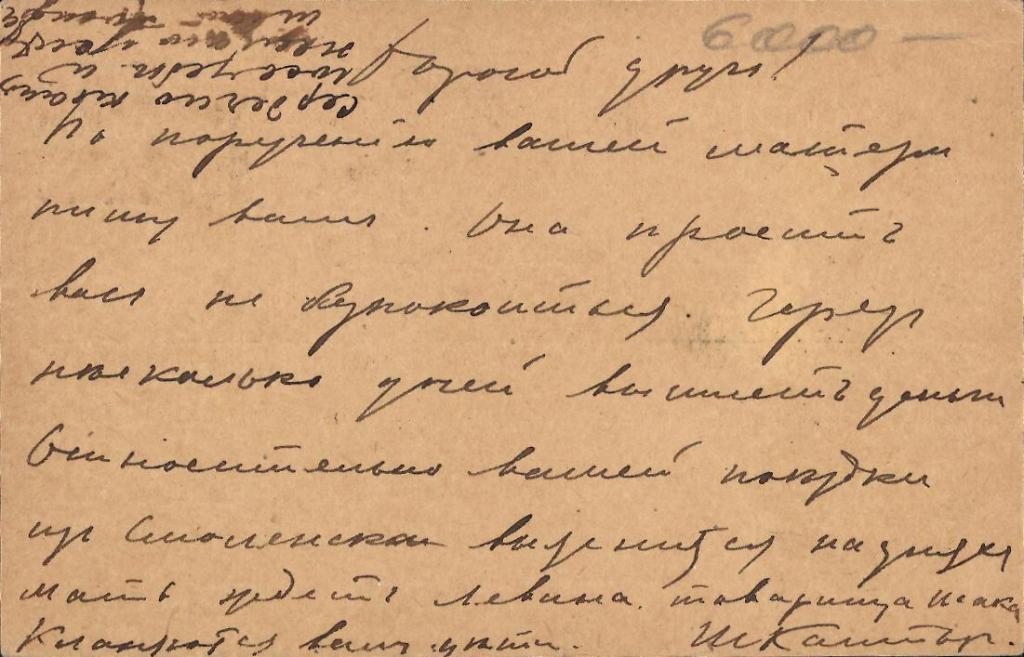 6000 —
Дорогой другъ!
По порученію вашей матери
пишу вамъ. Она проситъ
васъ не безпокоиться. Через
нѣсколько дней вышлетъ деньги
Относительно вашей поездки
из Смоленска выяснится на дняхъ
мать ждетъ Левина. товарища Исака
Кланяются вамъ дѣти. И Кантор.
Сердечно кланяюсь